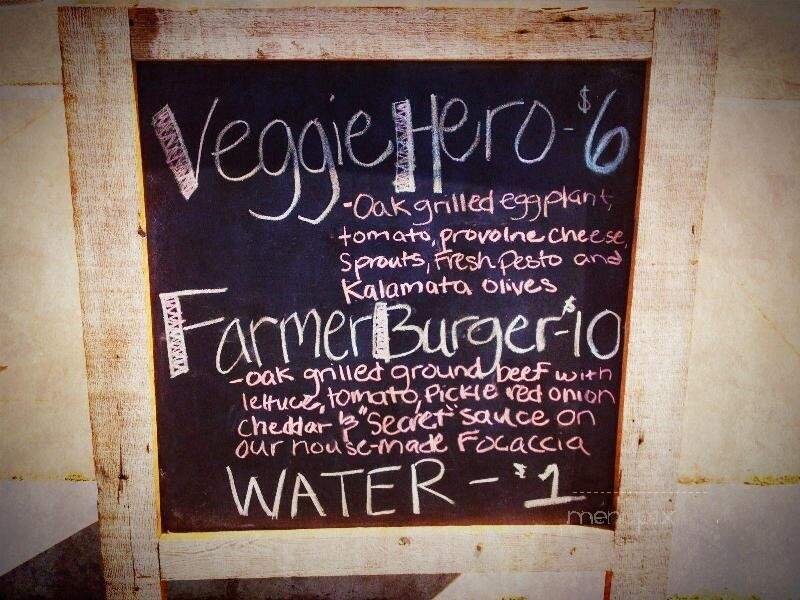 Veggie Hero - $6
-Oak grilled eggplant,
tomato, provolne cheese,
Sprouts, Fresh Pesto and
Kalamata olives
Farmer Burger - $10
-oak grilled ground beef with
lettuce, tomato, pickle red onion
cheddar & "Secret" sauce on
our house-made Focaccia
WATER - $1
menupix